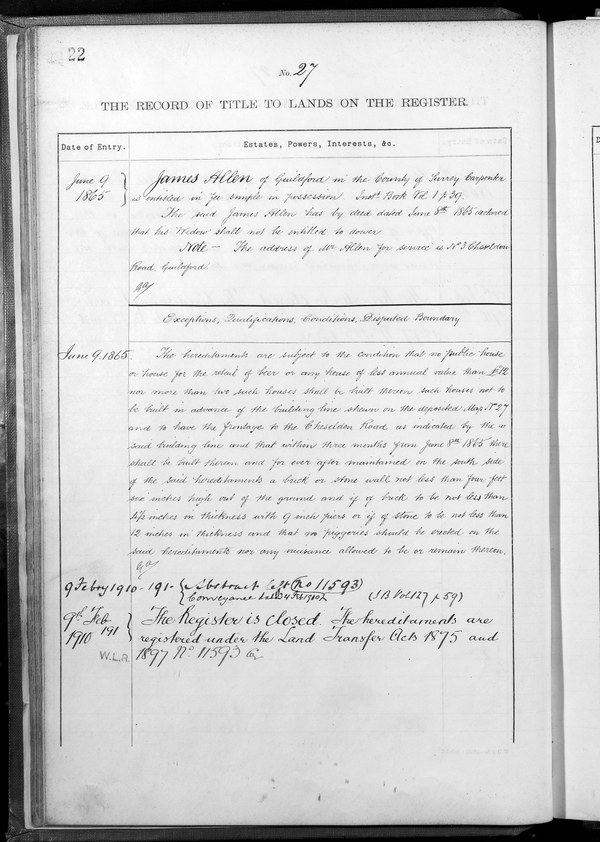 22
No. 27
THE RECORD OF TITLE TO LANDS ON THE REGISTER.
Date of Entry.
Estates, Powers, Interests, &c.
June 9
1865
James Allen of Guildford in the County of Surrey Carpenter
is entitled in fee simple in possession. Inst. Book Vol 1 p 39.
The said James Allen has by deed dated June 8th 1865 declared
that his Widow shall not be entitled to dower
Note — The address of Mr Allen for service is No 3 Cheseldon
Road, Guildford.
Exceptions, Qualifications, Conditions, Disputed Boundary
June 9. 1865.
The hereditaments are subject to the condition that no public house
or house for the retail of beer or any house of less annual value than £12
nor more than two such houses shall be built thereon such houses not to
be built in advance of the building line shewn on the deposited Map No 27
and to have the frontage to the Cheselden Road as indicated by the
said building line and that within three months from June 8th 1865 there
shall be built thereon and for ever after maintained on the south side
of the said hereditaments a brick or stone wall not less than four feet
six inches high out of the ground and if of brick to be not less than
4½ inches in thickness with 9 inch piers or if of stone to be not less than
12 inches in thickness and that no piggeries should be erected on the
said hereditaments nor any nuisance allowed to be or remain thereon.
9 Febry 1910 - 191 - Abstract (No 11593)
Conveyance dated 4 Feb 1902 (IB Vol 127 p 59)
9th Feb
1910 191
The Register is closed. The hereditaments are
registered under the Land Transfer Acts 1875 and
1897 No 11593
W.L.R.